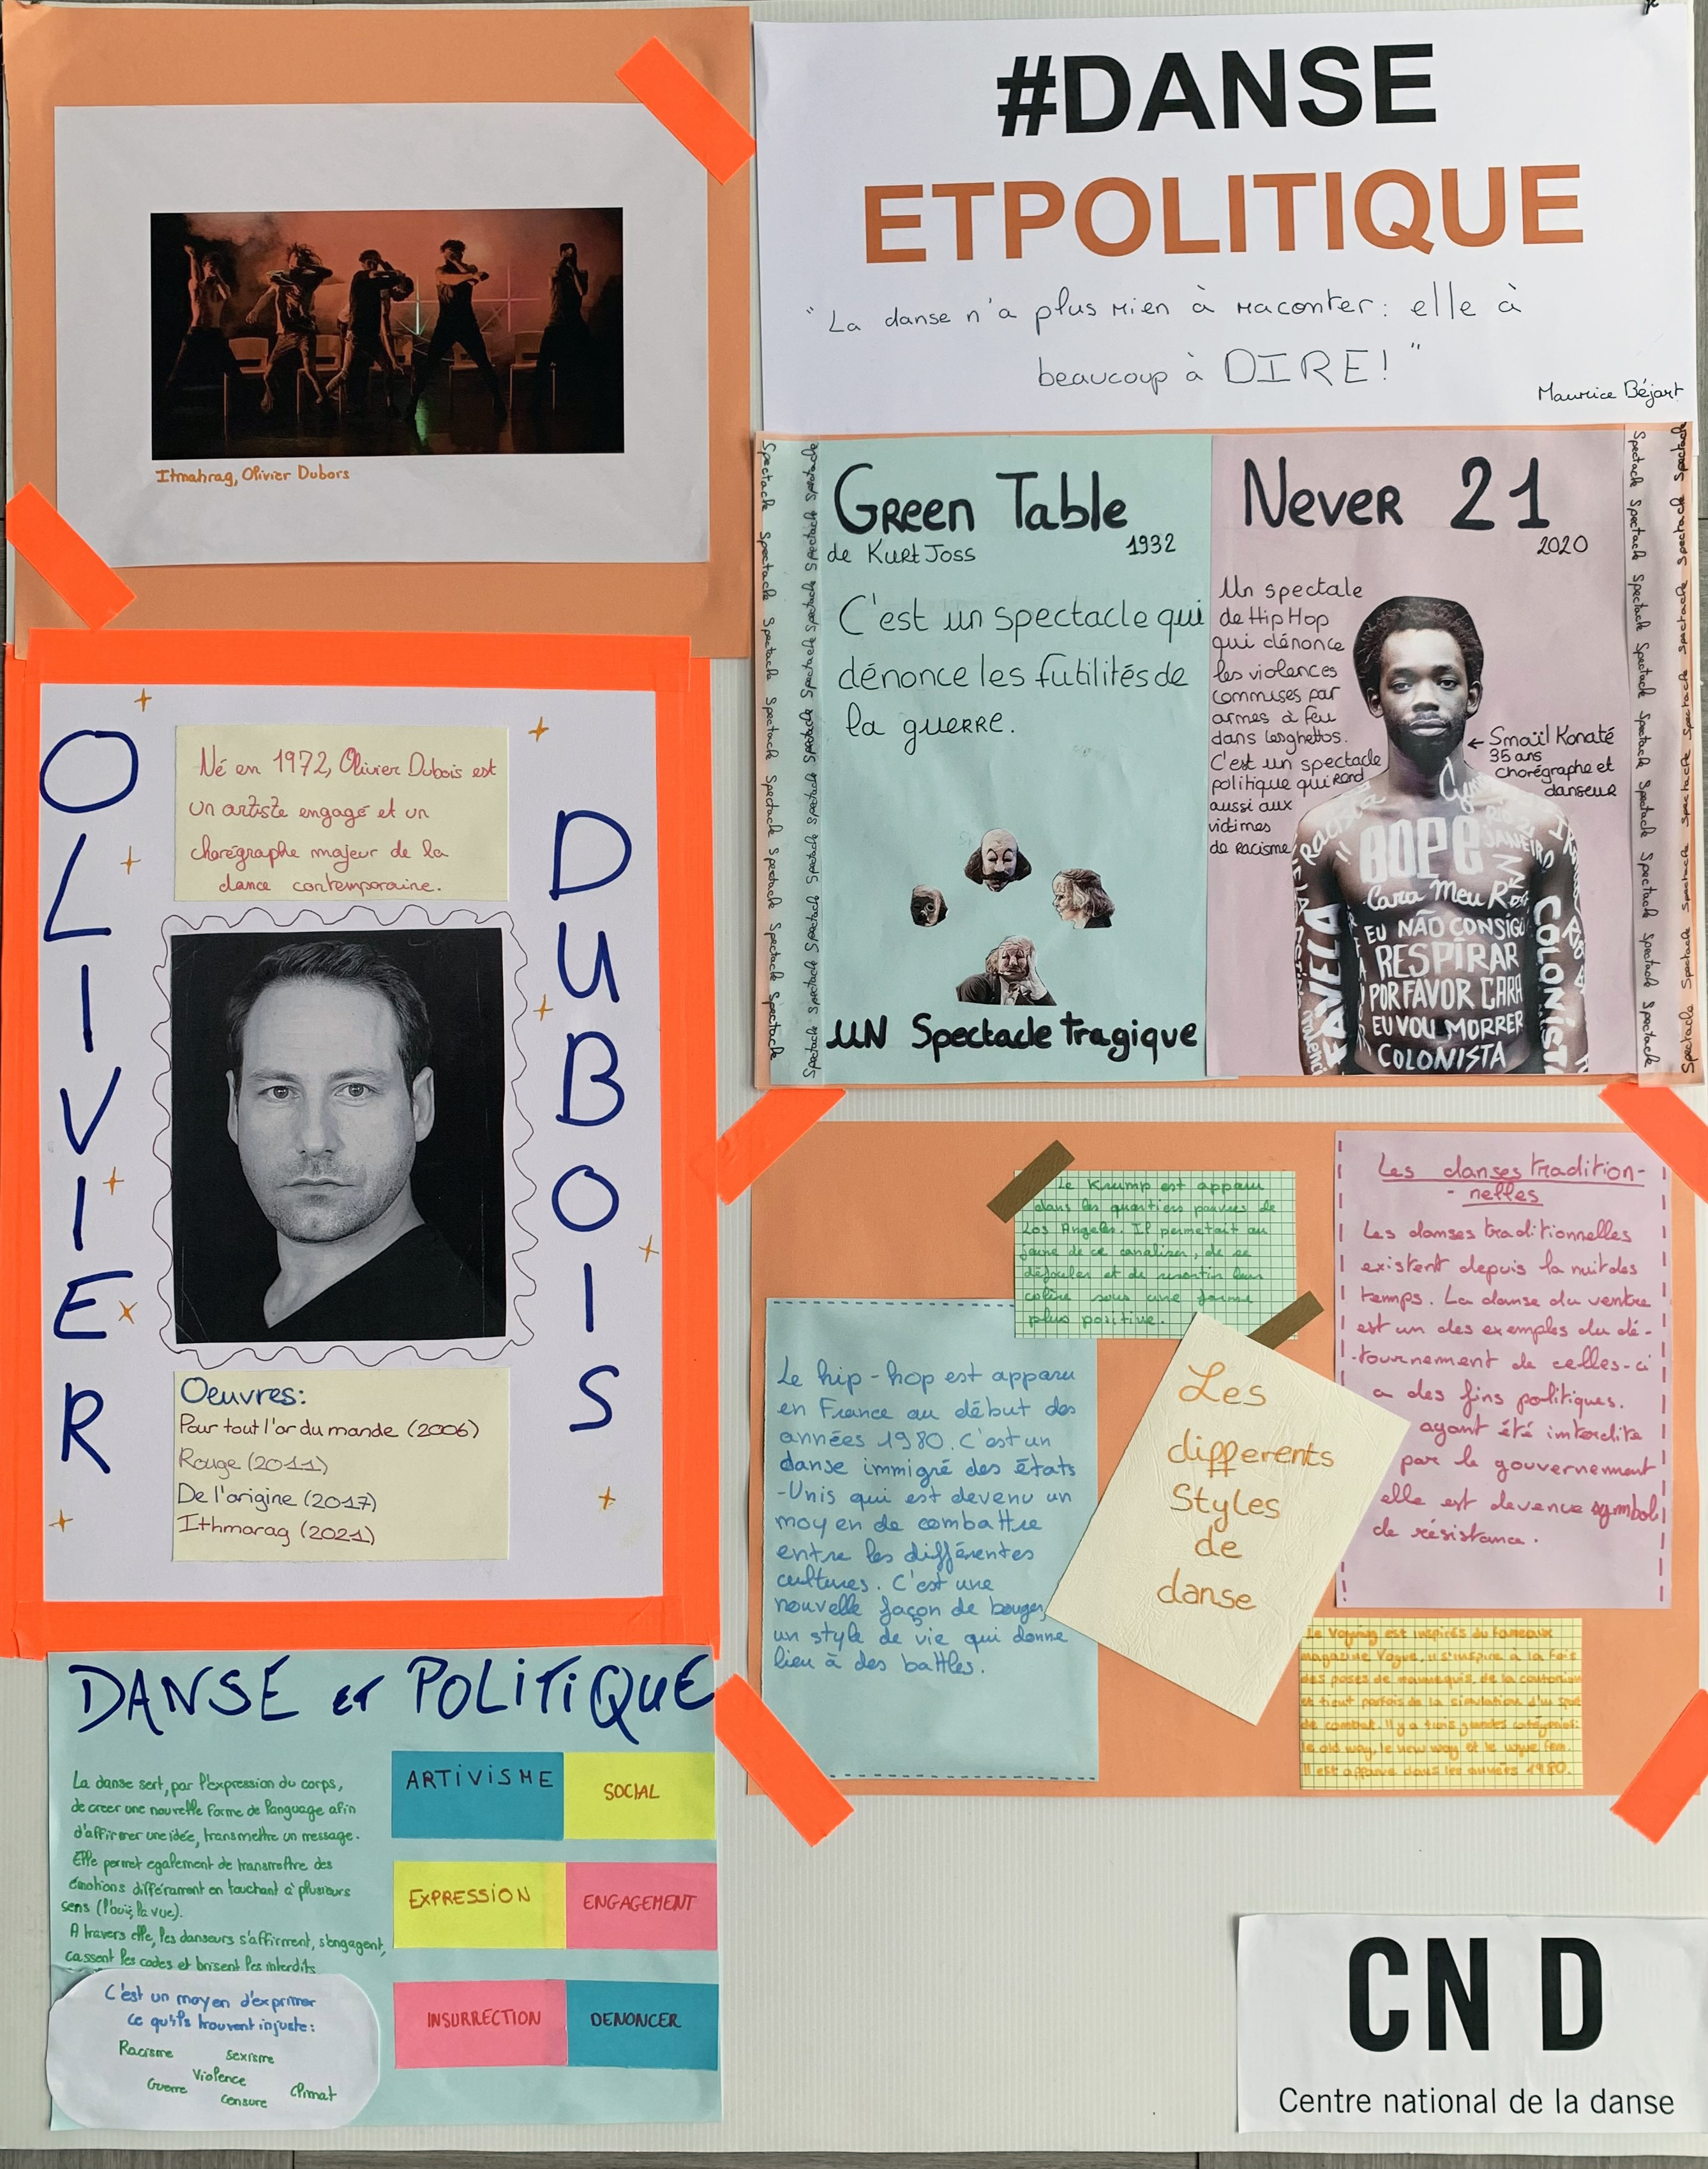 #DANSE
ETPOLITIQUE
"La danse n'a plus rien à raconter: elle à
beaucoup à DIRE!"
Maurice Béjart
Itmahrag, Olivier Dubors
OLIVIER
DUBOIS
Né en 1972, Olivier Dubois est
un artiste engagé et un
chorégraphe majeur de la
dance contemporaine.
Oeuvres:
Pour tout l'or du monde (2006)
Rouge (2011)
De l'origine (2017)
Ithmarag (2021)
Spectacle Spectacle Spectacle Spectacle Spectacle Spectacle Spectacle
Spectacle Spectacle Spectacle Spectacle Spectacle Spectacle Spectacle Spectacle
Green Table
de Kurt Joss
1932
C'est un spectacle qui
dénonce les futilités de
la guerre.
UN Spectacle tragique
Never 21
2020
Un spectale
de Hip Hop
qui dénonce
les violences
commises par
armes à feu
dans lesghettos.
C'est un spectacle
politique qui rend
aussi aux
victimes
de racisme
← Smaïl Konaté
35 ans
chorégraphe et
danseur
BOPE
RIO
JANEIRO
Cara Meu
EU NÃO CONSIGO
RESPIRAR
POR FAVOR CARA
EU VOU MORRER
COLONISTA
FAVELA
COLONIST
Racista
Spectacle Spectacle Spectacle Spectacle Spectacle Spectacle Spectacle
Spectacle Spectacle Spectacle Spectacle Spectacle Spectacle Spectacle Spectacle
Le Krump est apparu
dans les quartiers pauvres de
Los Angeles. Il permetait au
jeune de ce canaliser, de se
défouler et de resortir leur
colère sous une forme
plus positive.
Les danses tradition-
-nelles
Les danses traditionnelles
existent depuis la nuit des
temps. La danse du ventre
est un des exemples du dé-
-tournement de celles-ci
a des fins politiques.
ayant été interdite
par le gouvernement
elle est devenue symbol
de résistance.
Le hip-hop est apparu
en France au début des
années 1980. C'est un
danse immigré des états
-Unis qui est devenu un
moyen de combattre
entre les différentes
cultures. C'est une
nouvelle façon de bouger,
un style de vie qui donne
lieu à des battles.
Les
differents
Styles
de
danse
Le Voguing est inspirés du fameaux
magazine Vogue. Il s'inspire à la fois
des poses de mannequin, de la
et tient parfois de la simulation d'un
de combat. Il y a trois grandes catégories:
le old way, le new way et le vogue fem.
Il est apparue dans les années 1980.
DANSE et POLITIQUE
La danse sert, par l'expression du corps,
de creer une nouvelle forme de language afin
d'affirmer une idée, transmettre un message.
Elle permet egalement de transmettre des
émotions différament en touchant à plusieurs
sens (l'ouïe, la vue).
A travers elle, les danseurs s'affirment, s'engagent,
cassent les codes et brisent les interdits
C'est un moyen d'exprimer
ce qu'ils trouvent injuste:
Racisme
Sexisme
Violence
Guerre
Climat
Censure
ARTIVISME
SOCIAL
EXPRESSION
ENGAGEMENT
INSURRECTION
DENONCER
CN D
Centre national de la danse